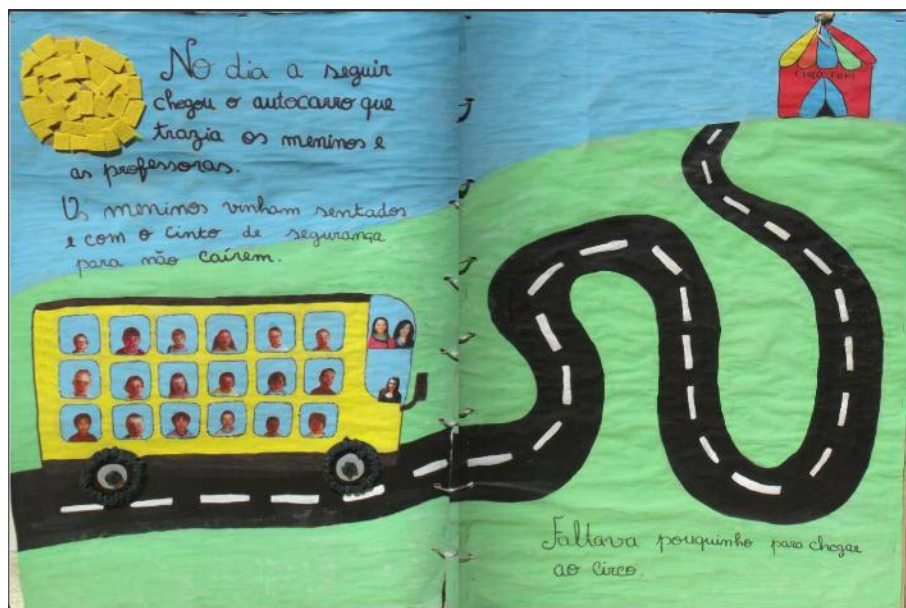 No dia a seguir
chegou o autocarro que
trazia os meninos e
as professoras.
Os meninos vinham sentados
e com o cinto de segurança
para não caírem.
Faltava pouquinho para chegar
ao circo.